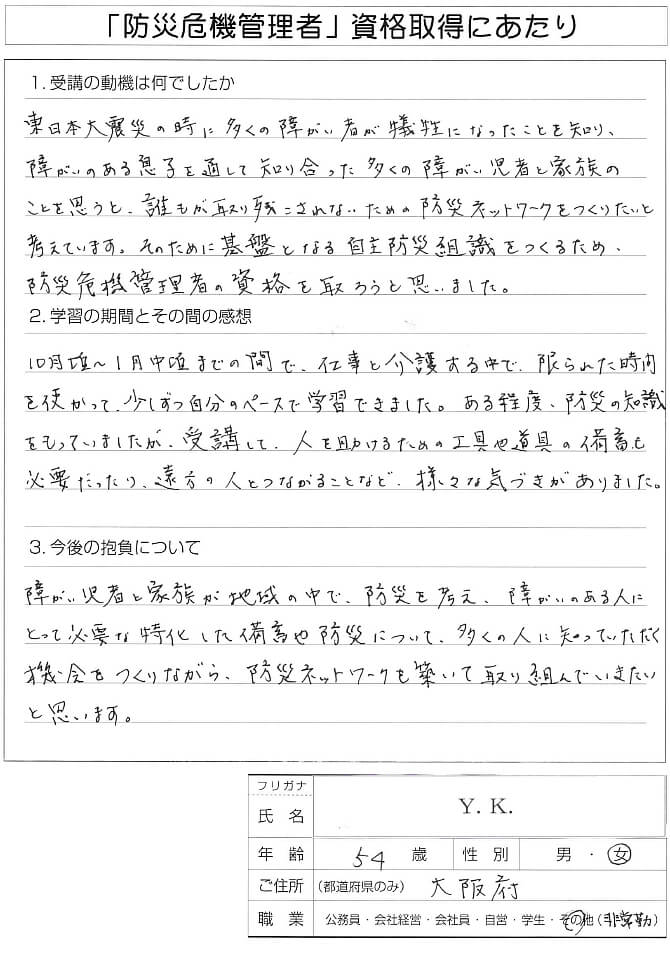 「防災危機管理者」資格取得にあたり
1. 受講の動機は何でしたか
東日本大震災の時に多くの障がい者が犠牲になったことを知り、
障がいのある息子を通して知り合った多くの障がい児者と家族の
ことを思うと、誰もが取り残こされないための防災ネットワークをつくりたいと
考えています。そのために基盤となる自主防災組識をつくるため、
防災危機管理者の資格を取ろうと思いました。
2. 学習の期間とその間の感想
10月頃〜1月中頃までの間で、仕事と介護する中で、限られた時間
を使かって、少しずつ自分のペースで学習できました。ある程度、防災の知識
をもっていましたが、受講して、人を助けるための工具や道具の備畜も
必要だったり、遠方の人とつながることなど、様々な気づきがありました。
3. 今後の抱負について
障がい児者と家族が地域の中で、防災を考え、障がいのある人に
とって必要な特化した備畜や防災について、多くの人に知っていただく
機会をつくりながら、防災ネットワークを築いて取り組んでいきたい
と思います。
フリガナ
氏名 Y. K.
年齢 54 歳 性別 男・女
ご住所 (都道府県のみ) 大阪府
職業 公務員・会社経営・会社員・自営・学生・その他(非常勤)